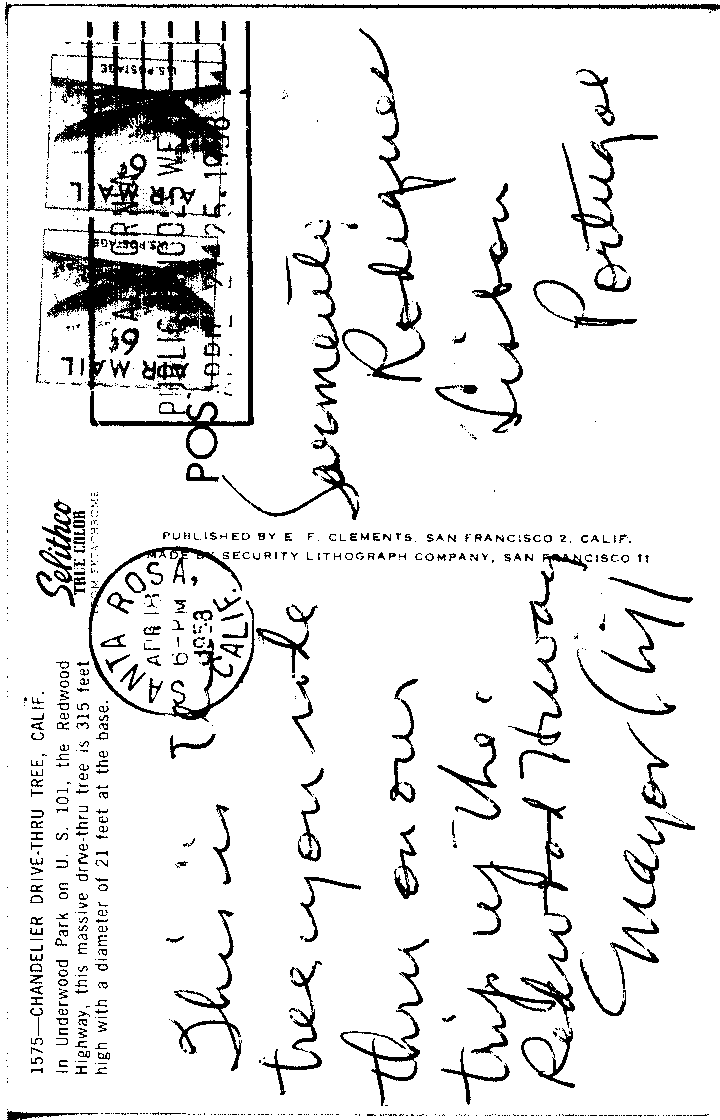 1575—CHANDELIER DRIVE-THRU TREE, CALIF.
In Underwood Park on U. S. 101, the Redwood
Highway, this massive drive-thru tree is 315 feet
high with a diameter of 21 feet at the base.
This is The
tree you rode
thru on our
trip up the
Redwood Highway
Mayor
Selithco
TRUE COLOR
FROM EKTACHROME
SANTA ROSA,
CALIF.
APR 18
6-PM
1958
PUBLISHED BY E. F. CLEMENTS, SAN FRANCISCO 2, CALIF.
MADE BY SECURITY LITHOGRAPH COMPANY, SAN FRANCISCO 11
POS
U.S. POSTAGE
6¢
AIR MAIL
U.S. POSTAGE
6¢
AIR MAIL
Rodrigues
Lisbon
Portugal